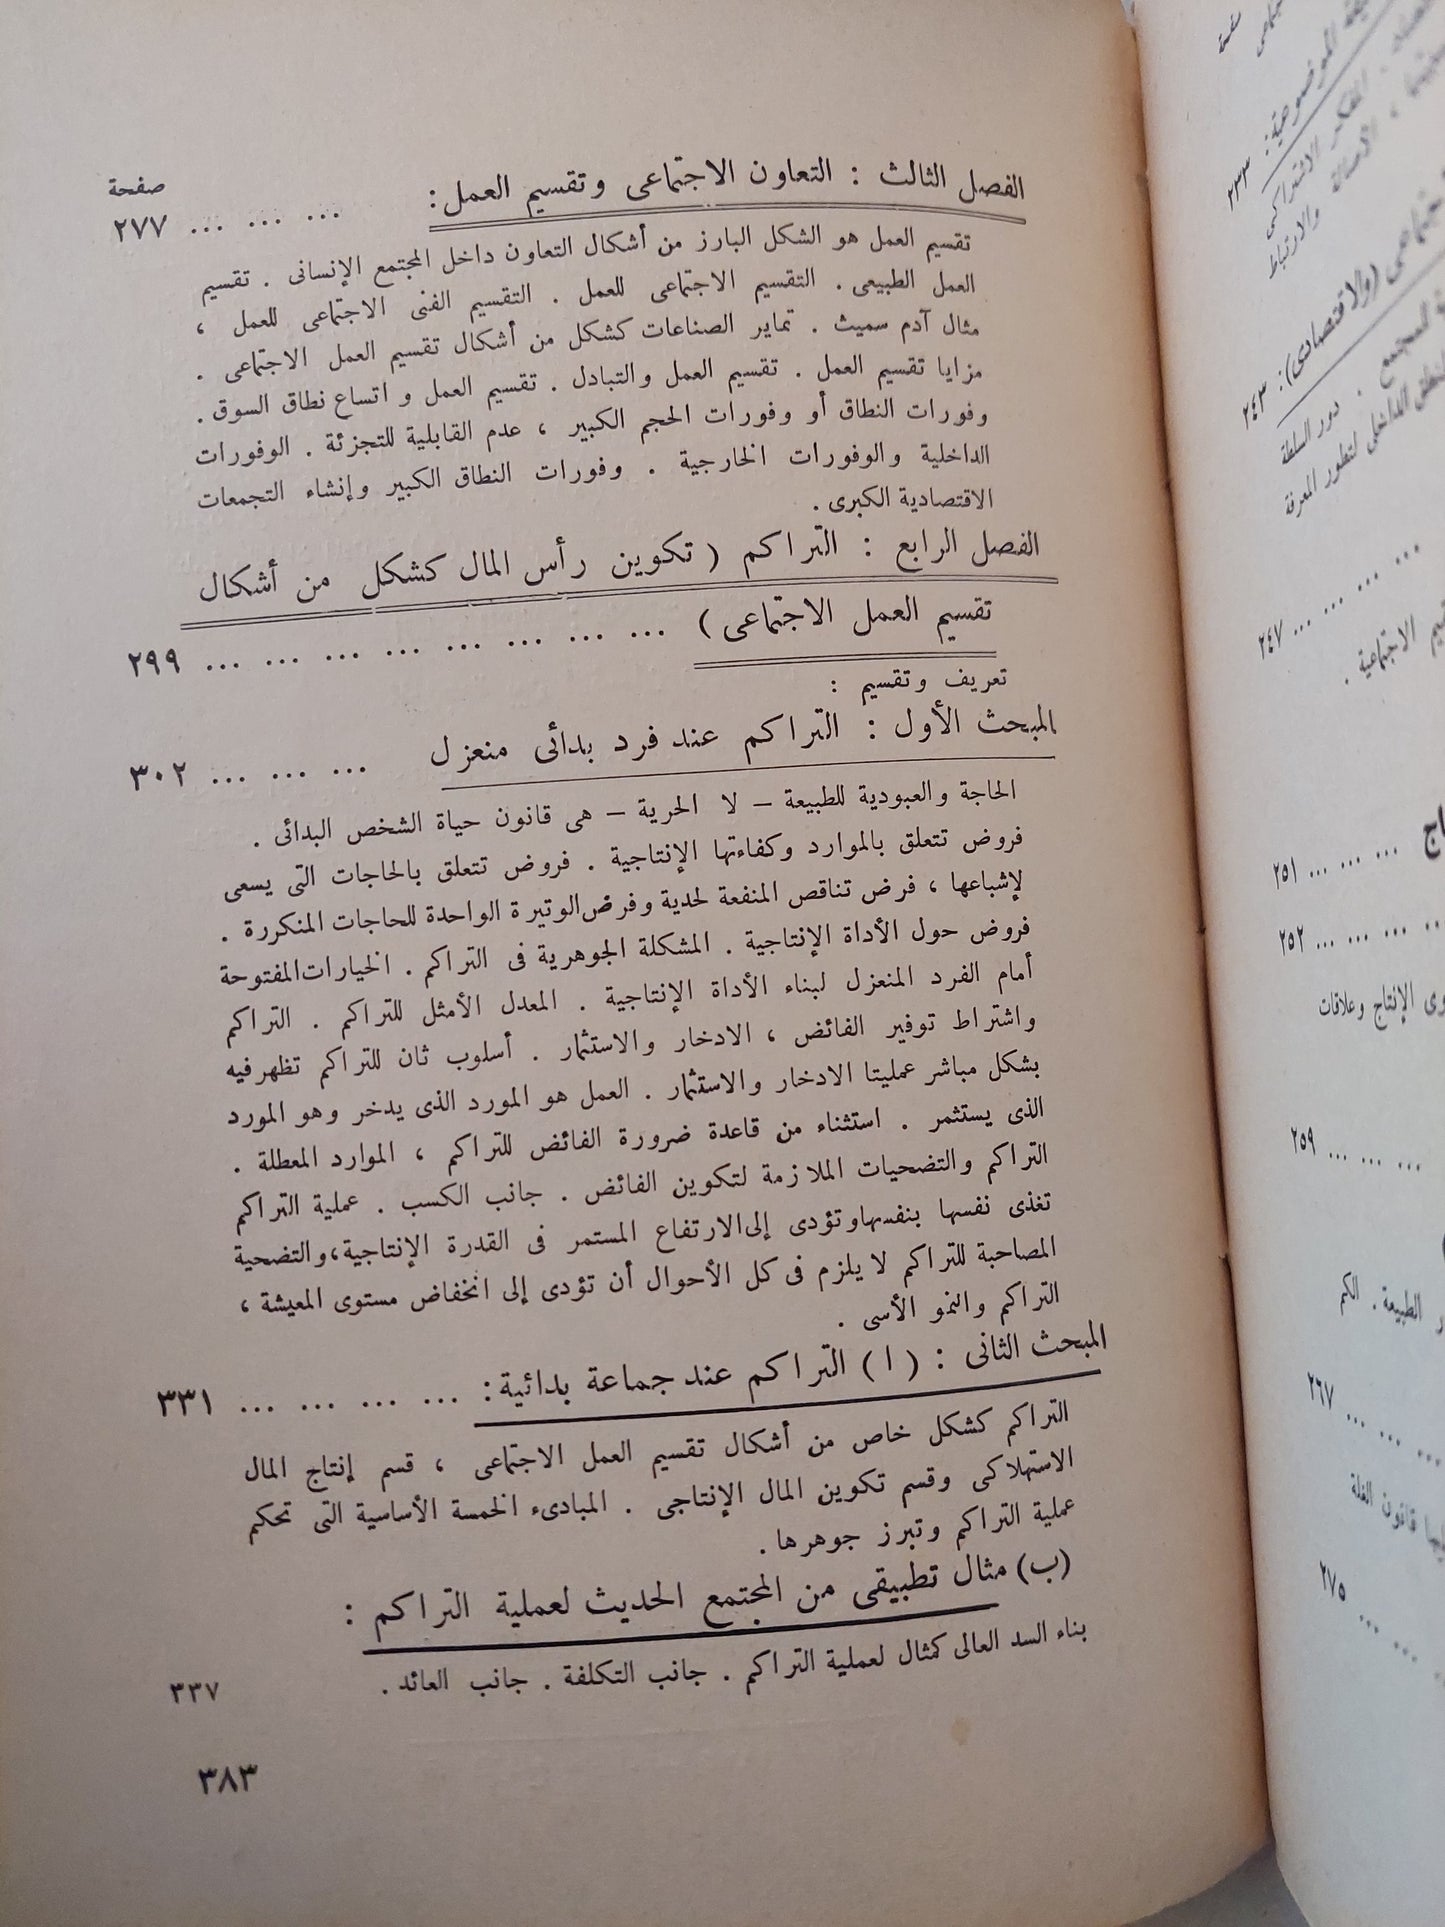 صفحة
الفصل الثالث : التعاون الاجتماعى وتقسيم العمل : ... ... ... ٢٧٧
تقسيم العمل هو الشكل البارز من أشكال التعاون داخل المجتمع الإنسانى . تقسيم
العمل الطبيعى . التقسيم الاجتماعى للعمل . التقسيم الفنى الاجتماعى للعمل ،
مثال آدم سميث . تمايز الصناعات كشكل من أشكال تقسيم العمل الاجتماعى .
مزايا تقسيم العمل . تقسيم العمل والتبادل . تقسيم العمل واتساع نطاق السوق .
وفورات النطاق أو وفورات الحجم الكبير ، عدم القابلية للتجزئة . الوفورات
الداخلية والوفورات الخارجية . وفورات النطاق الكبير وإنشاء التجمعات
الاقتصادية الكبرى .
الفصل الرابع : التراكم ( تكوين رأس المال كشكل من أشكال
تقسيم العمل الاجتماعى ) ... ... ... ... ... ... ... ... ٢٩٩
تعريف وتقسيم :
المبحث الأول : التراكم عند فرد بدائى منعزل ... ... ... ٣٠٢
الحاجة والعبودية للطبيعة – لا الحرية – هى قانون حياة الشخص البدائى .
فروض تتعلق بالموارد وكفاءتها الإنتاجية . فروض تتعلق بالحاجات التى يسعى
لإشباعها ، فرض تناقص المنفعة لحدية وفرض الوتيرة الواحدة للحاجات المتكررة .
فروض حول الأداة الإنتاجية . المشكلة الجوهرية فى التراكم . الخيارات المفتوحة
أمام الفرد المنعزل لبناء الأداة الإنتاجية . المعدل الأمثل للتراكم . التراكم
واشتراط توفير الفائض ، الادخار والاستثمار . أسلوب ثان للتراكم تظهر فيه
بشكل مباشر عمليتا الادخار والاستثمار . العمل هو المورد الذى يدخر وهو المورد
الذى يستثمر . استثناء من قاعدة ضرورة الفائض للتراكم ، الموارد المعطلة .
التراكم والتضحيات الملازمة لتكوين الفائض . جانب الكسب . عملية التراكم
تغذى نفسها بنفسها وتؤدى إلى الارتفاع المستمر فى القدرة الإنتاجية ، والتضحية
المصاحبة للتراكم لا يلزم فى كل الأحوال أن تؤدى إلى انخفاض مستوى المعيشة ،
التراكم والنمو الأسى .
المبحث الثانى : ( ا ) التراكم عند جماعة بدائية : ... ... ... ... ٣٣١
التراكم كشكل خاص من أشكال تقسيم العمل الاجتماعى ، قسم إنتاج المال
الاستهلاكى وقسم تكوين المال الإنتاجى . المبادىء الخمسة الأساسية التى تحكم
عملية التراكم وتبرز جوهرها .
(ب) مثال تطبيقى من المجتمع الحديث لعملية التراكم :
بناء السد العالى كمثال لعملية التراكم . جانب التكلفة . جانب العائد . ٣٣٧
٣٨٣
صفحة
الموضوعية : ٢٣٣
الفكر الاشتراكى
، الأصالة والارتباط
(والاقتصادى) : ٢٤٣
المجتمع . دور السلطة
الداخلى لتطور المعرفة
... ... ... ... ٢٤٧
الاجتماعية .
... ... ... ٢٥١
... ... ... ... ٢٥٢
الإنتاج وعلاقات
... ... ... ٢٥٩
الطبيعة . الكم
... ... ... ٢٦٧
قانون الغلة
... ... ... ٢٧٥